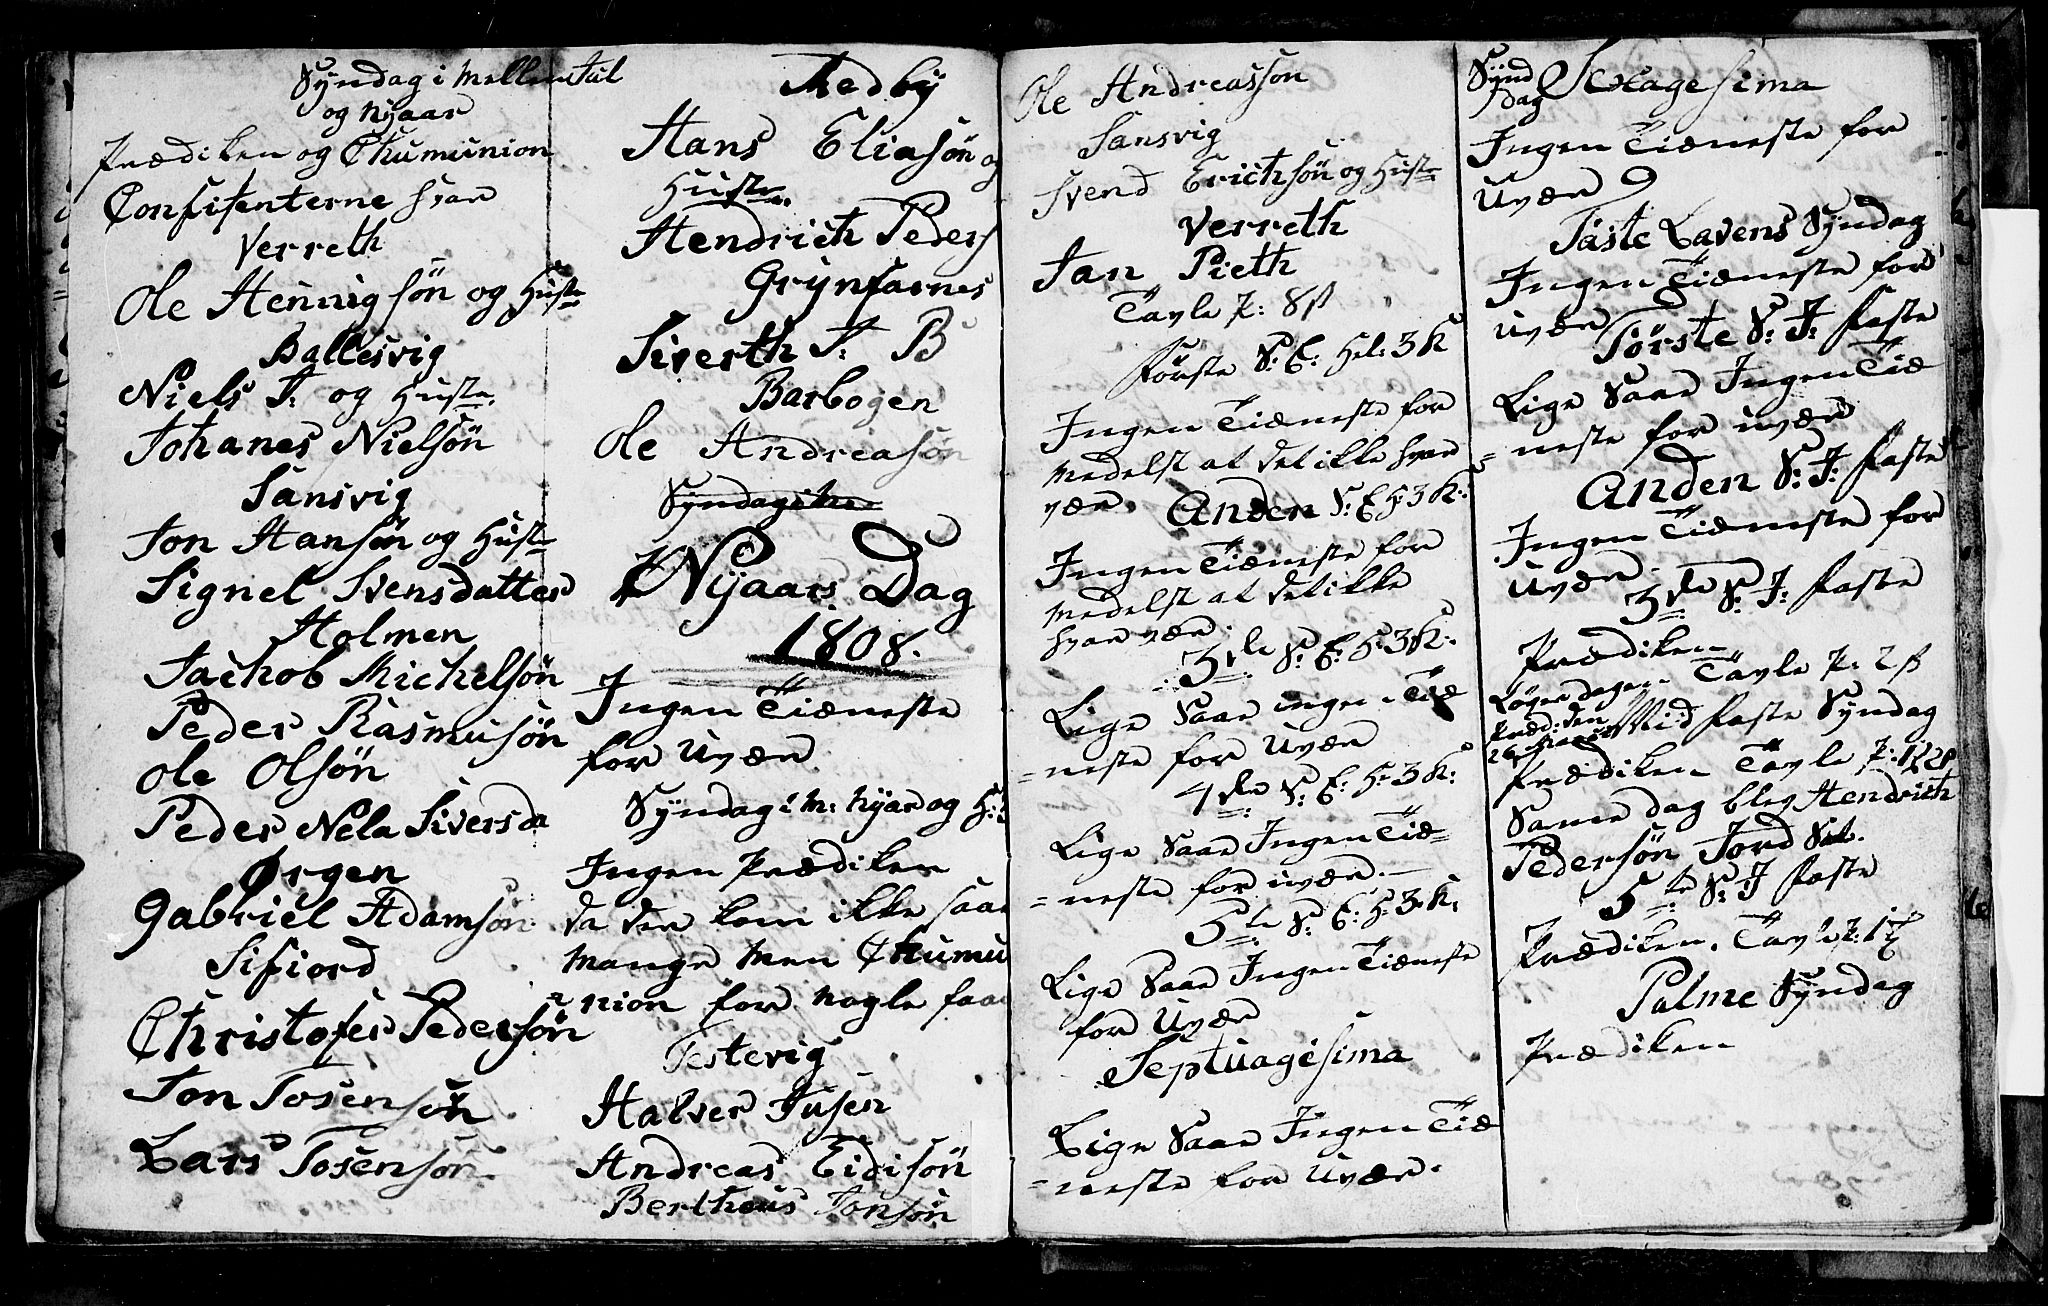 Syndag i Mellem Jul
og Nyaar
Prædiken og Chumunion
Confitenterne hvar
Verreth
Ole Hennigsøn og Hust
Ballesvig
Niels J: og Hust
Johanes Nielsøn
Sansvig
Jon Hansøn og Hust
Signel Svensdatter
Holmen
Jachob Michelsøn
Peder Rasmusøn
Ole Olsøn
Peder Nela Siversda
Ørgen
Gabriel Adamsøn
Sifiord
Christofer Pedersøn
Jon Tosensøn
Lars Tosensøn
Medby
Hans Eliasøn og
Hust
Hendrich Peders
Grynfarnes
Siverth J: B
Barbogen
Ole Andreasøn
Syndag i
Nyaars Dag
1808.
Ingen Tiæneste
for Uvær
Syndag i M: Nyar og H: 3
Ingen Prædiken
da der kom ikke saa
mange men Chumu
= nion for nogle faa
Testevig
Halver Jusen
Andreas Eidisøn
Bertheus Jonsøn
Ole Andreassøn
Sansvig
Svend Erichsøn og Hust
Verreth
Jan Pieth
Tavle P: 8 s
Første S: E: Hel: 3 K
Ingen Tiæneste for
medelst at det ikke hvar
vær. Anden S: E: H: 3 K:
Ingen Tiæneste for
medelst at det ikke
hvar vær.
3de S: E: H: 3 K:
Lige Saa ingen Tiæ
= neste for Uvær
4de S: E: H: 3 K:
Lige Saa Ingen Tiæ=
= neste for uvær.
5te S: E: H: 3 K:
Lige Saa Ingen Tiæneste
for Uvær
Septuagesima
Lige Saa Ingen Tiæ
= neste for Uvær.
Synd
dag Sexagesima
Ingen Tiæneste for
Uvær
Faste Lavens Syndag
Ingen Tiæneste for
uvær
Første S: J: Faste
Lige Saa Ingen Tiæ
= neste for uvær
Anden S: J: Faste
Ingen Tiæneste for
Uvær.
3de S: J: Faste
Prædiken Tavle P: 2 s
Løgerdagen
Præd: den
26 Mid Faste Syndag
Prædiken Tavle P:
Same dag blev Hendrich
Pedersøn Jord Sat.
5te S: J Faste
Prædiken. Tavle P:
Palme Syndag
Prædiken